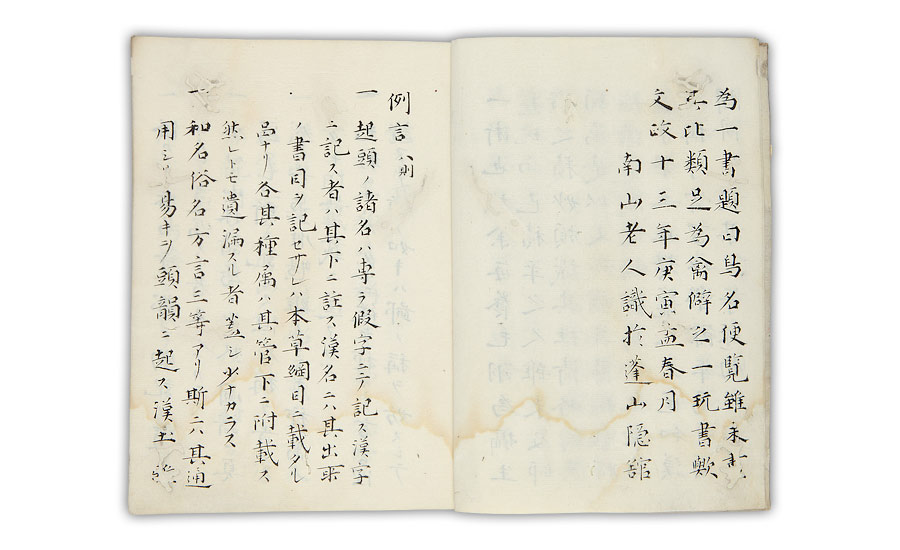 為一書題曰鳥名便覧雖未
其比類足為禽僻之一玩書歟
文政十三年庚寅孟春月
南山老人識於蓬山隠舘
例言 八則
一 起頭ノ諸名ハ専ラ假字ニテ記ス漢字
ニ記ス者ハ其下ニ註ス漢名ニハ其出所
ノ書目ヲ記セサレ本草綱目ニ載クル
品ナリ各其種属ハ其管下ニ附載ス
然レトモ遺漏スル者蓋シ少ナカラス
一 和名俗名方言三等アリ斯ニハ其通
用シ易キヲ頭韻ニ起ス漢土